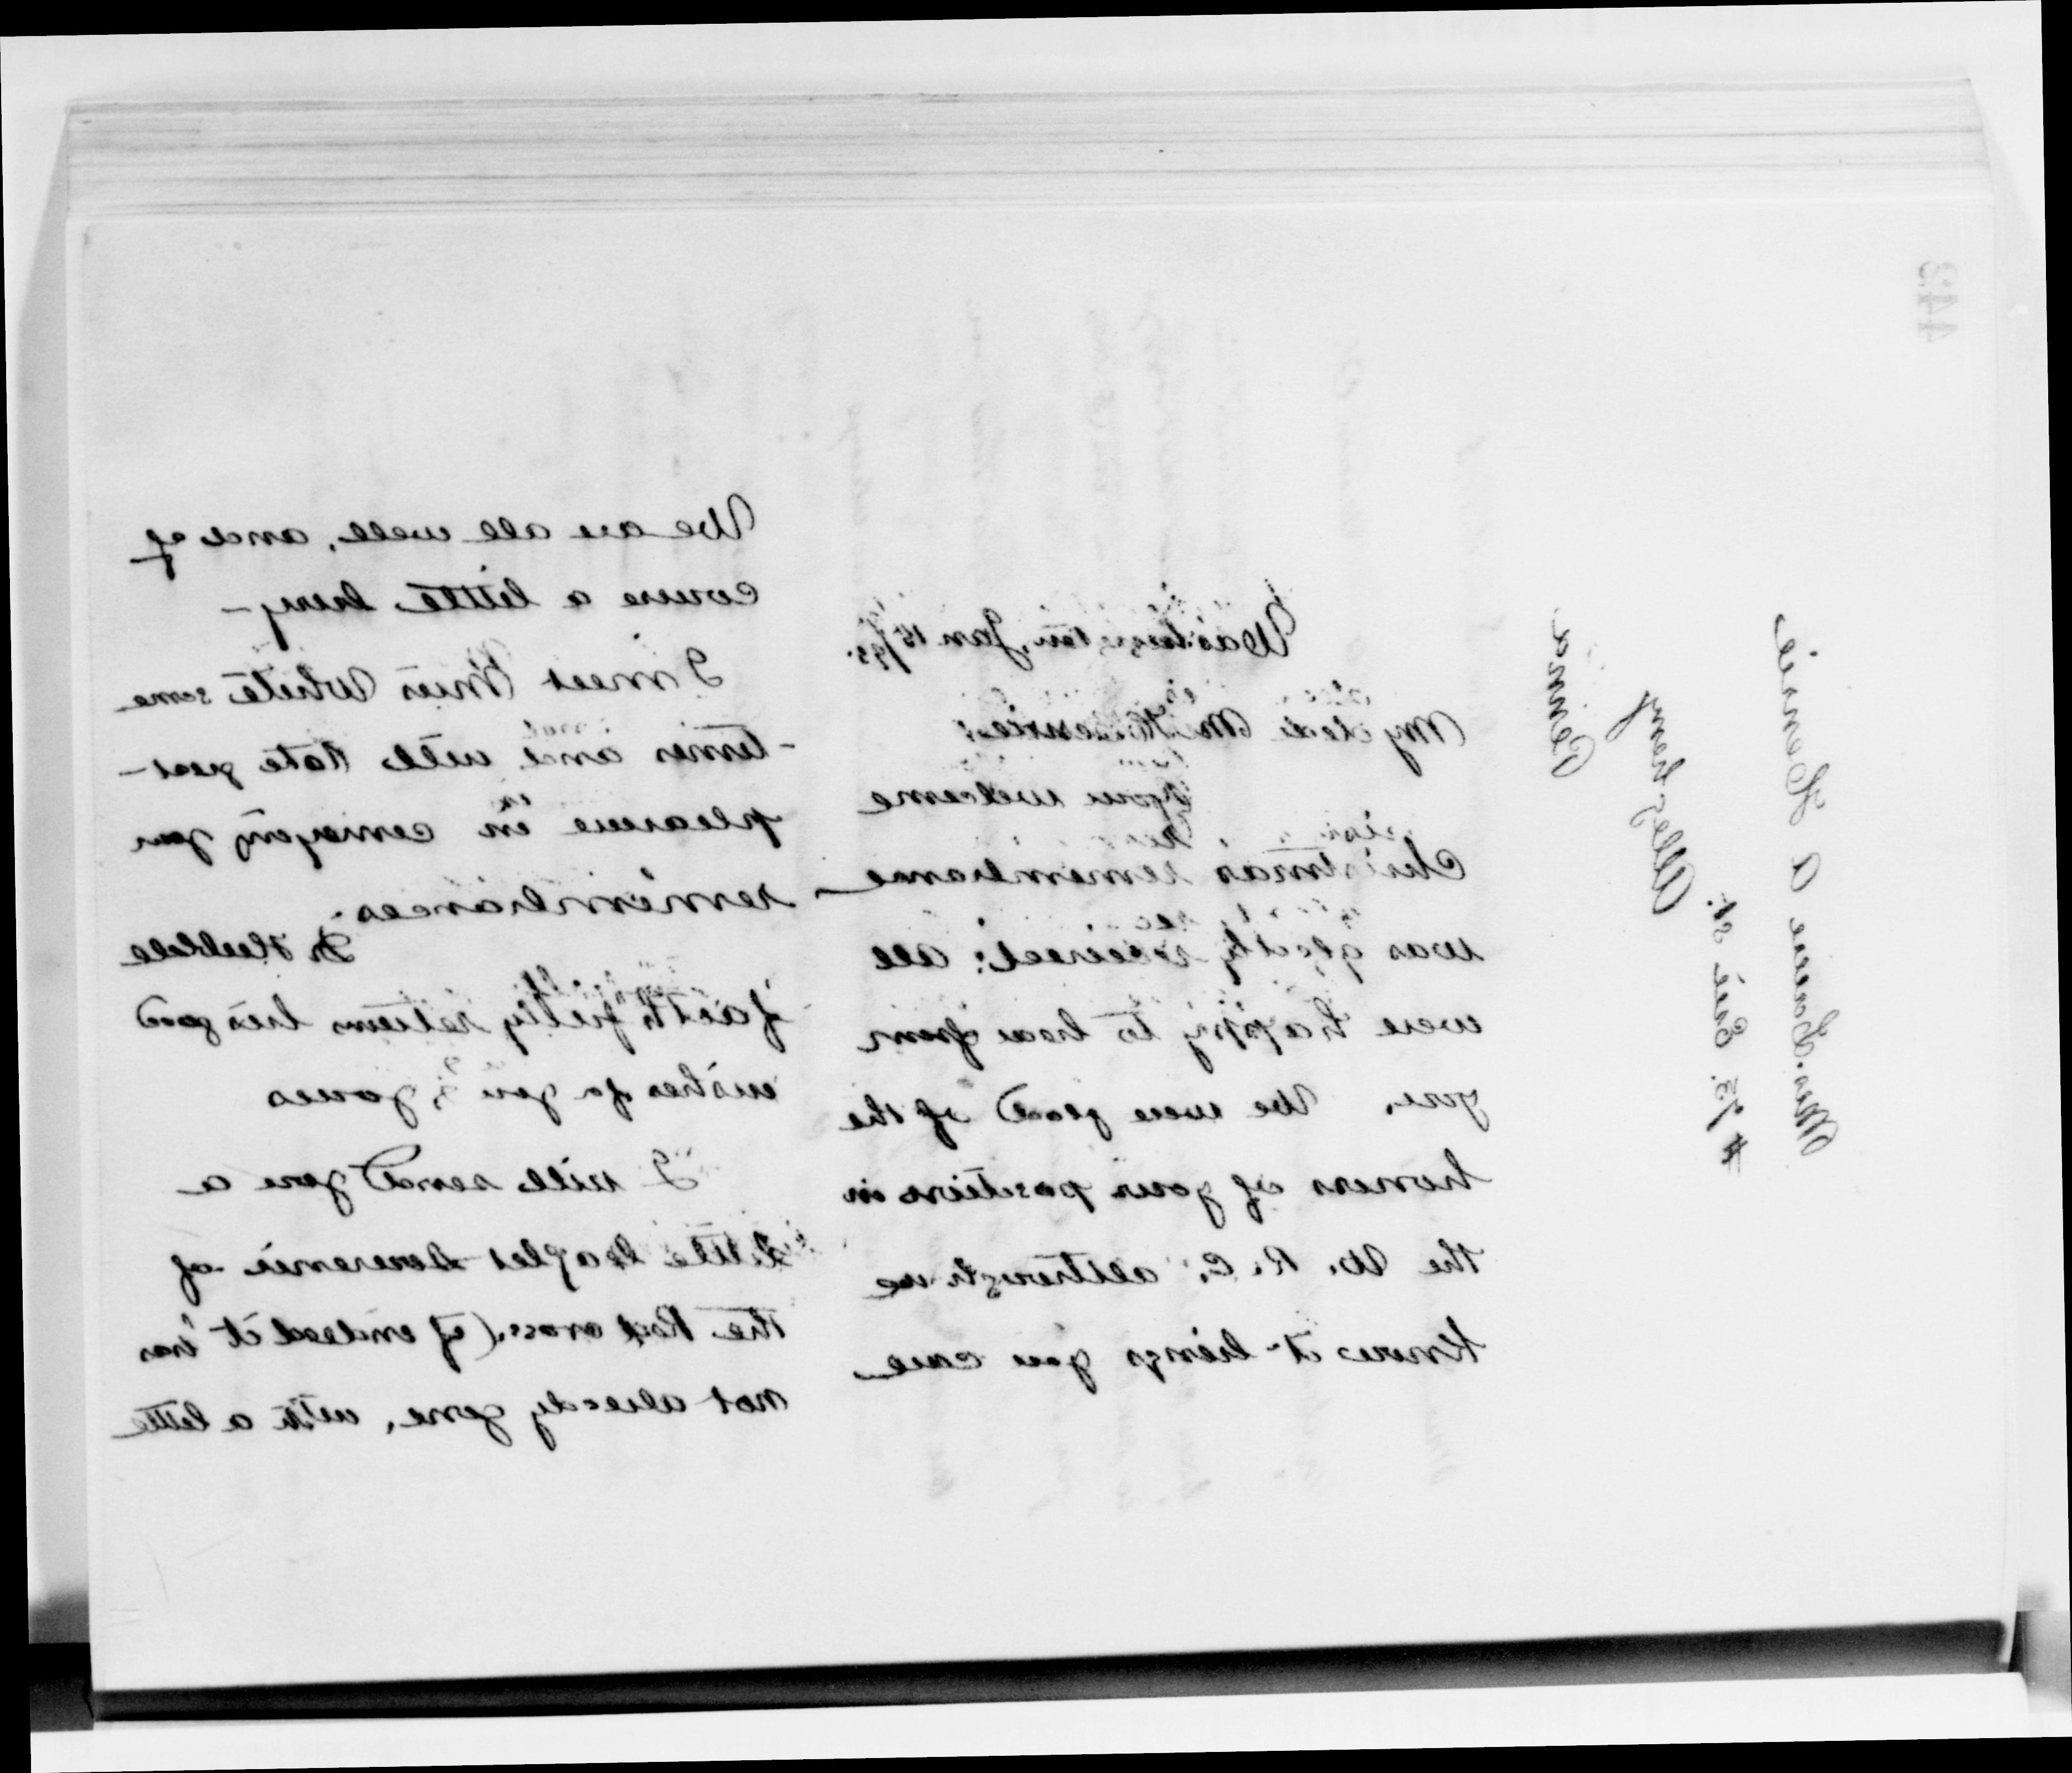 443
Mrs. Louise A Denrie
# 75. Erie St.
Allegheny
Penna
Washington, Jan 15/95.
My dear Mrs
Your welcome
Christmas remembrance
was gladly received: all
were happy to hear from
you. We were glad of the
honors of your position in
the W. R. C. although we
know it brings you care
We are all well, and of
course a little busy—
I meet Miss White some
-times and will take great—
pleasure in conveying your
remembrances.
Dr Hubbell
faithfully returns his good
wishes for you & yours
I will send you a
little Leaflet Souvenir of
the Red Cross, (if indeed it has
not already gone, with a little